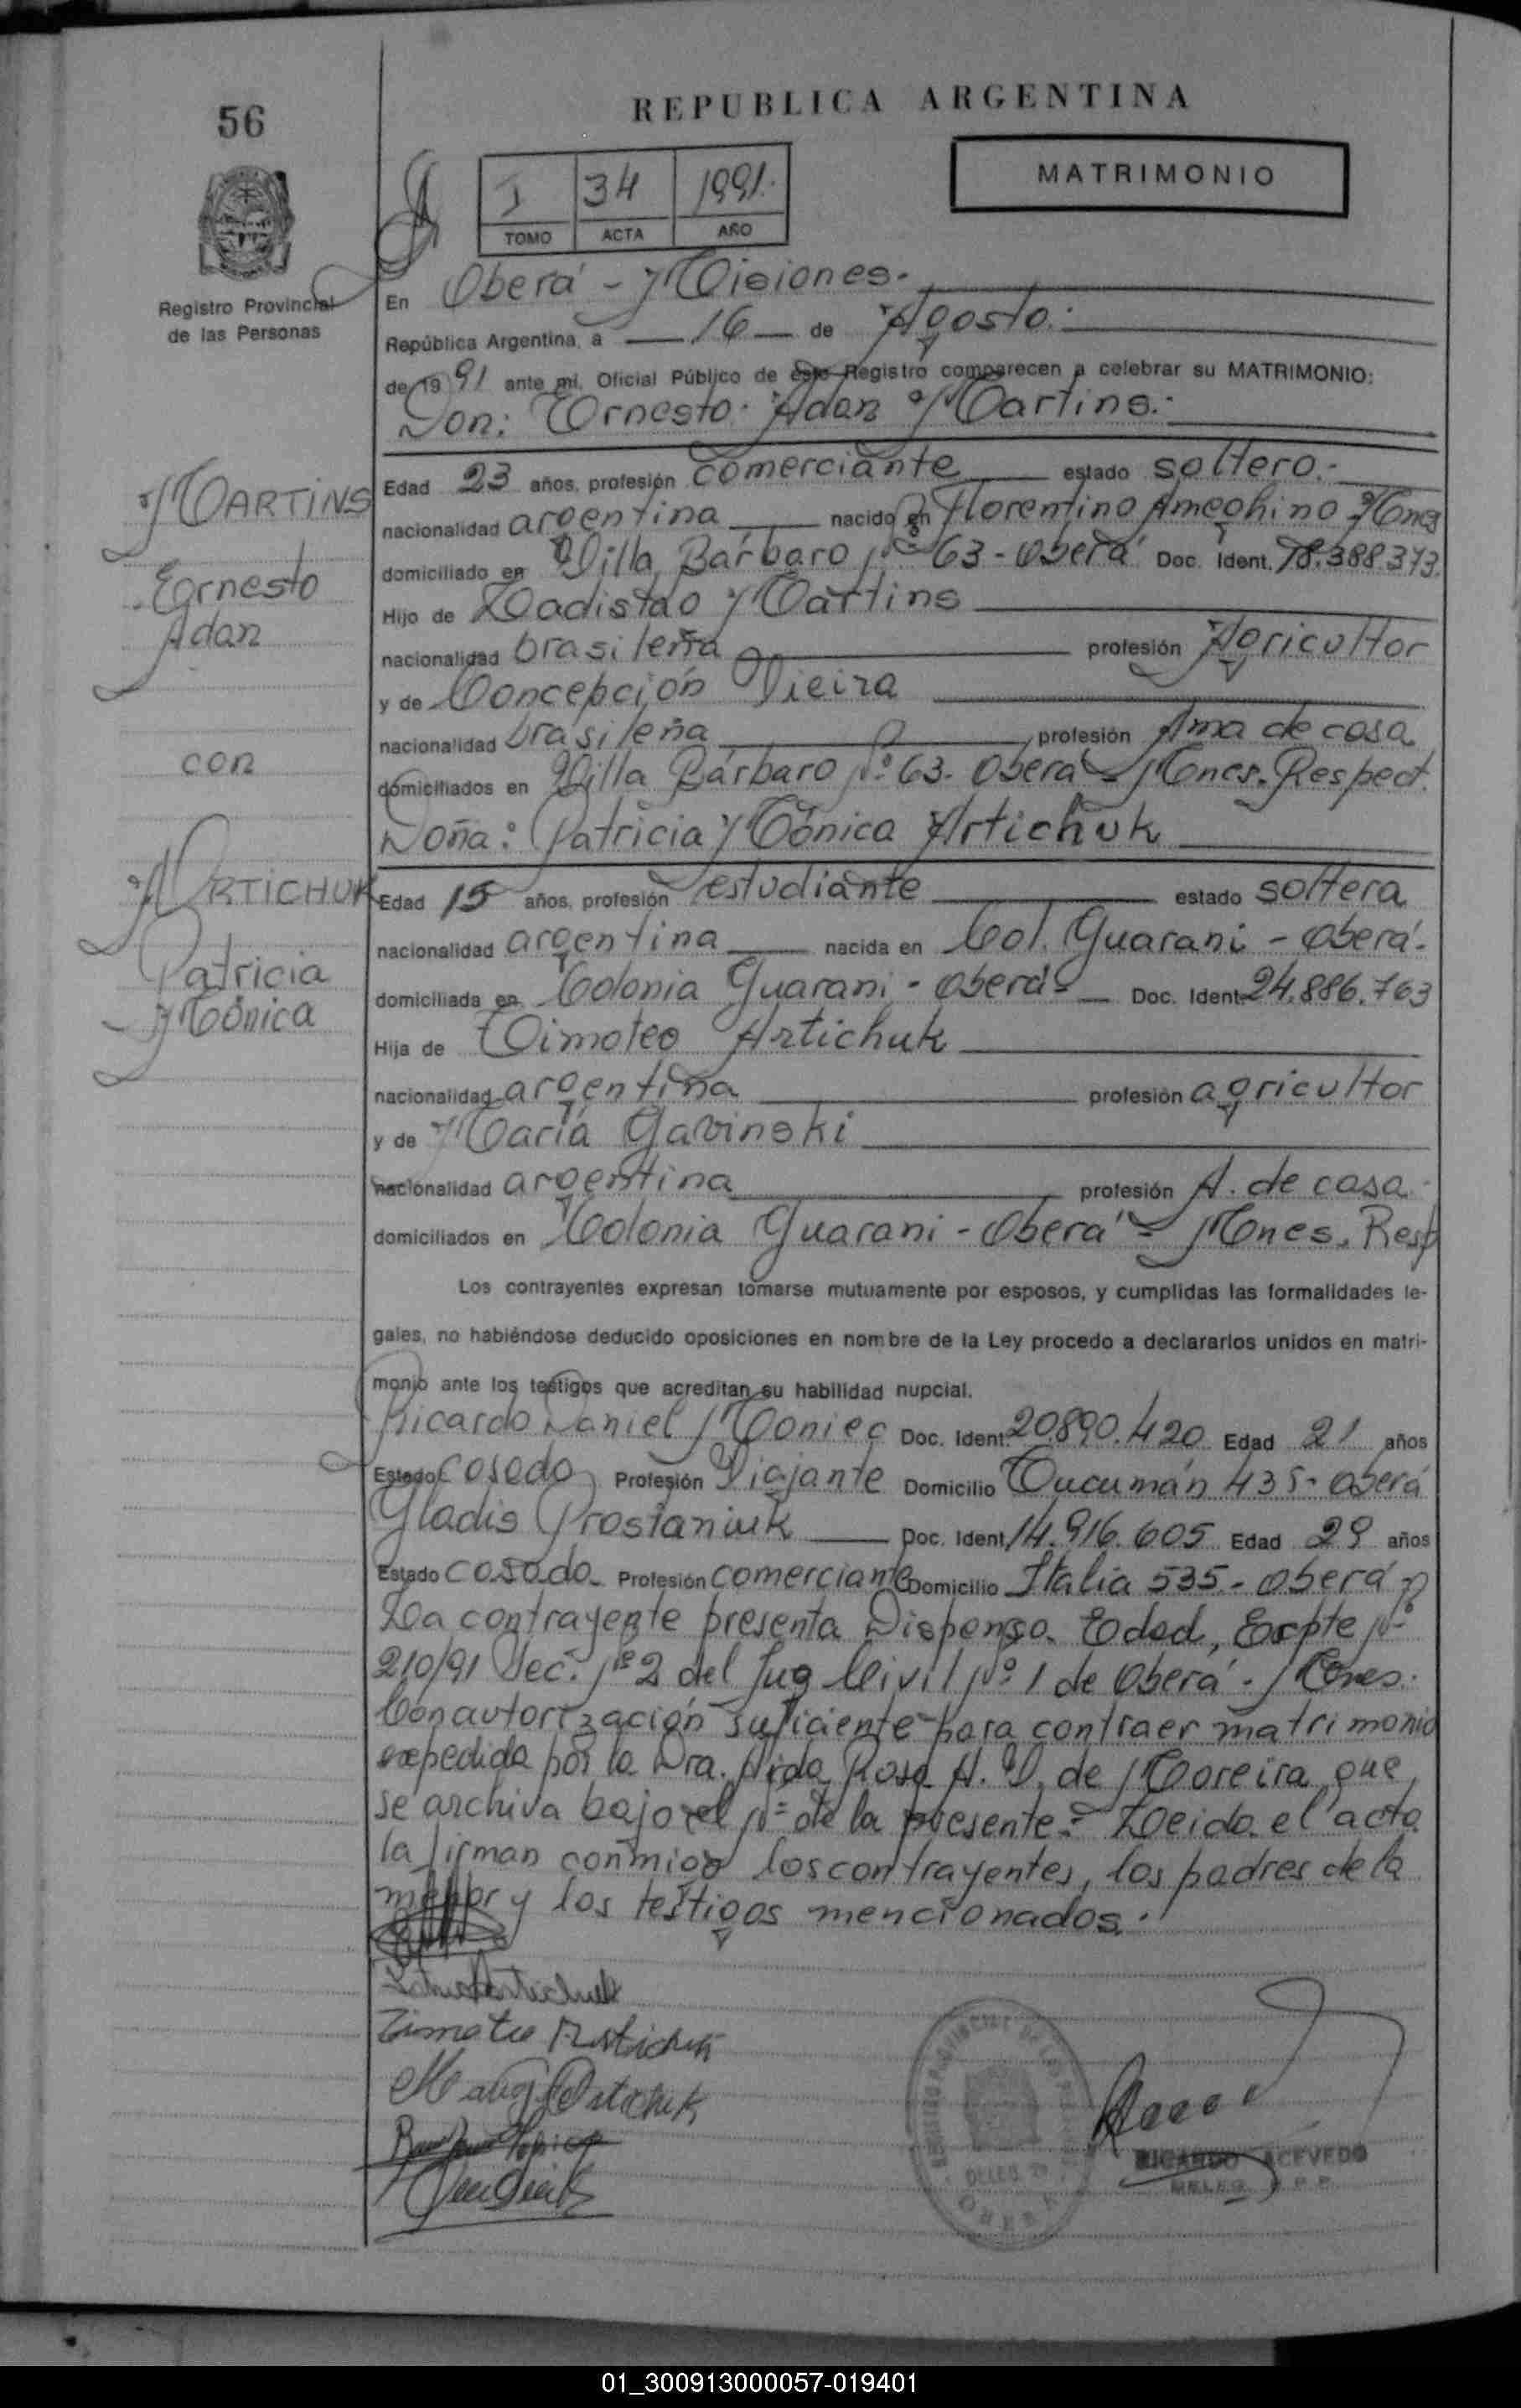 REPUBLICA ARGENTINA
56
MATRIMONIO
I 34 1991.
TOMO ACTA AÑO
Registro Provincial
de las Personas
En Oberá - Misiones.
República Argentina, a 16 de Agosto.
de 19 91 ante mi, Oficial Público de este Registro comparecen a celebrar su MATRIMONIO:
Don: Ernesto Adan Martins.
MARTINS
Ernesto
Adan
con
ARTICHUK
Patricia
Mónica
Edad 23 años, profesión comerciante estado soltero.
nacionalidad argentina nacido en Florentino Ameghino Mnes
domiciliado en Villa Bárbaro Nº 63 - Oberá Doc. Ident. 18.388.373.
Hijo de Ladislao Martins
nacionalidad brasileña profesión Agricultor
y de Concepción Vieira
nacionalidad brasileña profesión Ama de casa
domiciliados en Villa Bárbaro Nº 63 - Oberá - Mnes. Respect.
Doña: Patricia Mónica Artichuk
Edad 15 años, profesión estudiante estado soltera
nacionalidad argentina nacida en Col. Guarani - Oberá -
domiciliada en Colonia Guarani - Oberá - Doc. Ident. 24.886.763
Hija de Timoteo Artichuk
nacionalidad argentina profesión agricultor
y de María Gavinski
nacionalidad argentina profesión A. de casa
domiciliados en Colonia Guarani - Oberá - Mnes. Resp
Los contrayentes expresan tomarse mutuamente por esposos, y cumplidas las formalidades le-
gales, no habiéndose deducido oposiciones en nombre de la Ley procedo a declararlos unidos en matri-
monio ante los testigos que acreditan su habilidad nupcial.
Ricardo Daniel Moniec Doc. Ident. 20.890.420 Edad 21 años
Estado casado Profesión Viajante Domicilio Tucumán 435 - Oberá
Gladis Prostaniuk Doc. Ident. 14.916.605 Edad 29 años
Estado casada Profesión comerciante Domicilio Italia 535 - Oberá
La contrayente presenta Dispensa Edad, Expte Nº
210/91 Sec. Nº 2 del Juz Civil Nº 1 de Oberá - Mnes.
Con autorización suficiente para contraer matrimonio
expedida por la Dra. Aida Rosa A. V. de Moreira, que
se archiva bajo el Nº de la presente. Leida el acta
la firman conmigo los contrayentes, los padres de la
menor y los testigos mencionados.
Artichuk
Timoteo Artichuk
Artichuk
DELEG.
OBERA
RICARDO ACEVEDO
DELEG. R. P. P.
01_300913000057-019401